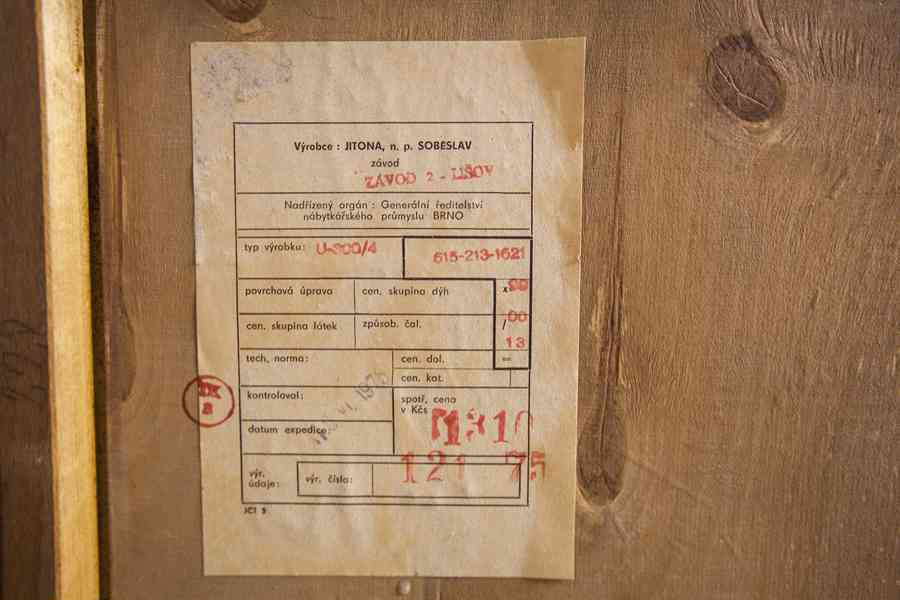 Výrobce : JITONA, n. p. SOBĚSLAV
závod
ZÁVOD 2 - LIŠOV
Nadřízený orgán : Generální ředitelství
nábytkářského průmyslu BRNO
typ výrobku: U-300/4
615-213-1621
povrchová úprava cen. skupina dýh x
cen. skupina látek způsob. čal. /00
13
tech, norma: cen. dol. =
cen. kat.
kontroloval: spotř, cena
v Kčs
1310
datum expedice: VI. 1975
IX
2
121 75
výr.
údaje: výr. čísla:
JČT 9